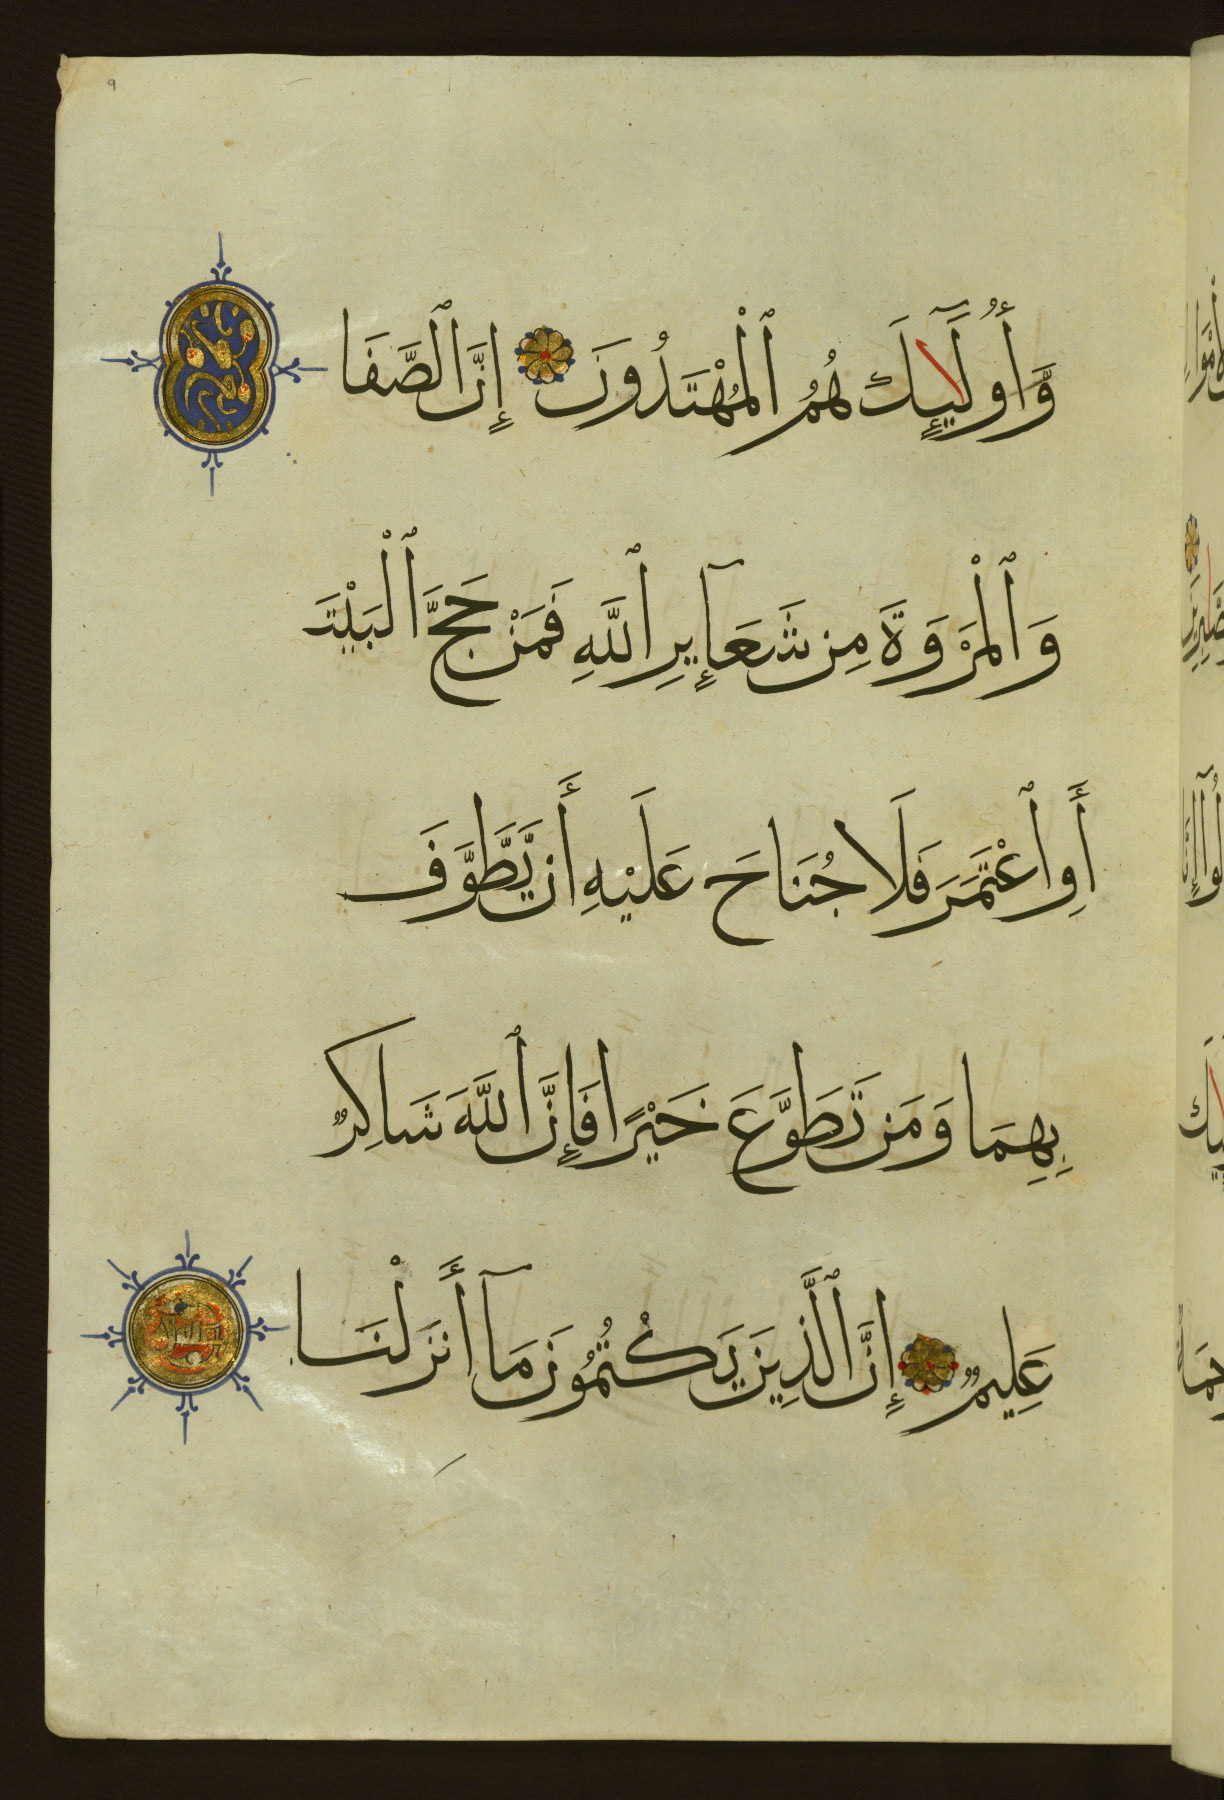 وَّأُولَٰٓئِكَ هُمُ ٱلْمُهْتَدُونَ إِنَّ ٱلصَّفَا
وَٱلْمَرْوَةَ مِن شَعَآئِرِ ٱللَّهِ فَمَنْ حَجَّ ٱلْبَيْتَ
أَوِ ٱعْتَمَرَ فَلَا جُنَاحَ عَلَيْهِ أَن يَّطَّوَّفَ
بِهِمَا وَمَن تَطَوَّعَ خَيْرًا فَإِنَّ ٱللَّهَ شَاكِرٌ
عَلِيمٌ إِنَّ ٱلَّذِينَ يَكْتُمُونَ مَآ أَنزَلْنَا